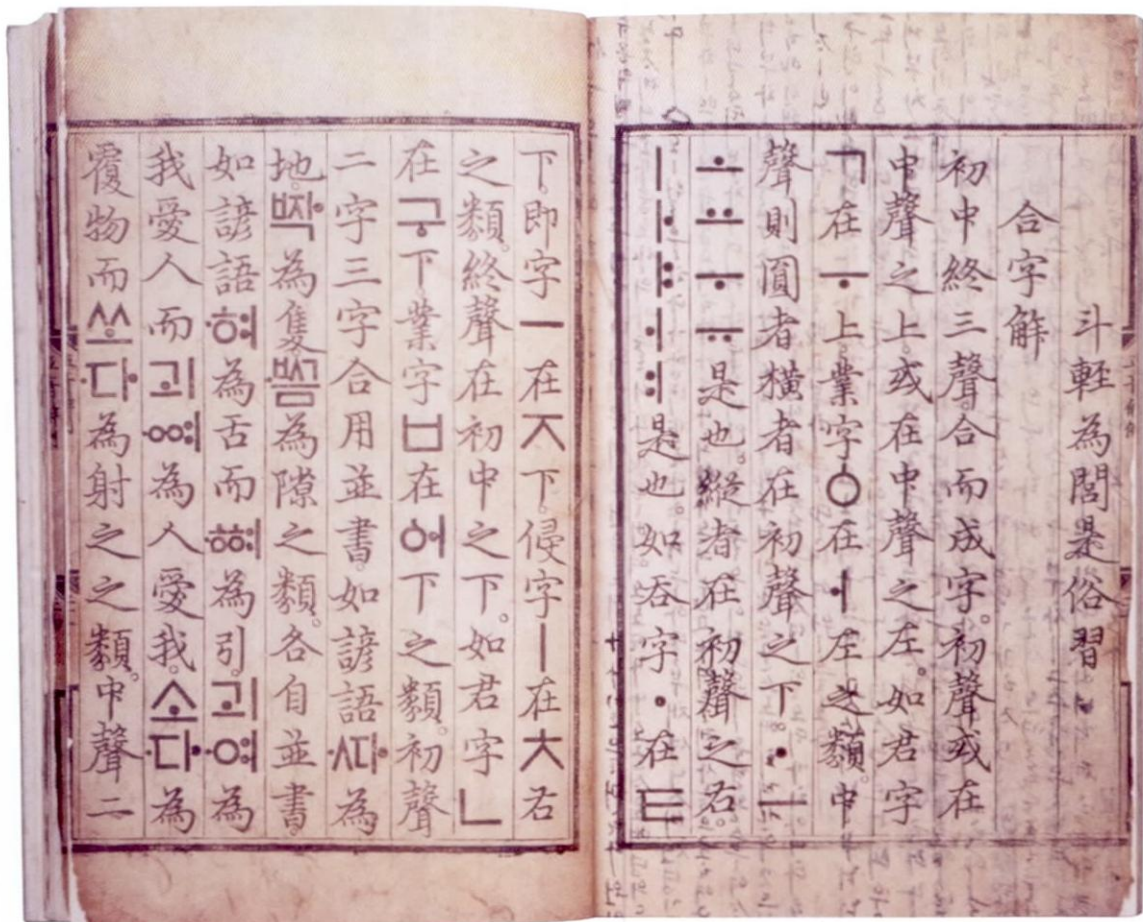 斗輕為閭是俗習
合字解
初中終三聲合而成字。初聲或在
中聲之上。或在中聲之左。如君字
ㄱ在ㅜ上。業字ㆁ在ㅓ左之類。中
聲則圓者橫者在初聲之下。ㆍㅡ
ㅗㅛㅜㅠ是也。縱者在初聲之右。
ㅣㅏㅑㅓㅕ是也。如吞字ㆍ在ㅌ
下。即字ㅡ在ㅈ下。侵字ㅣ在ㅊ右
之類。終聲在初中之下。如君字ㄴ
在구下。業字ㅂ在ᅌᅥ下之類。初聲
二字三字合用並書。如諺語〮ᄯᅡ為
地。ᄧᅡᆨ為隻。ᄢᅳᆷ為隙之類。各自並書
如諺語〮혀為舌而〮ᅘᅧ為引。괴〮여為
我愛人而괴〮ᅇᅧ為人愛我。소〮다為
覆物而쏘〮다為射之之類。中聲二